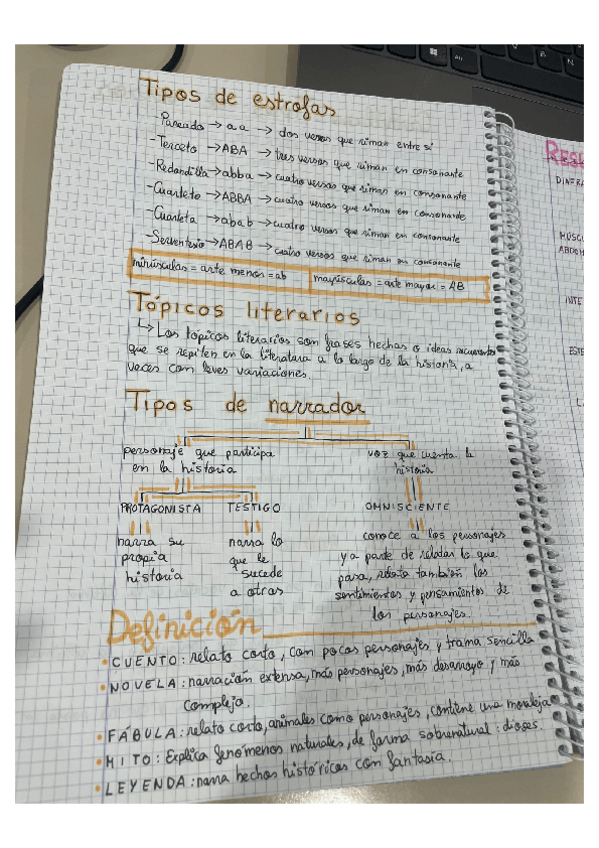 Tipos de estrofas
-Pareado → aa → dos versos que riman entre sí
-Terceto → ABA → tres versos que riman en consonante
-Redondilla → abba → cuatro versos que riman en consonante
-Cuarteto → ABBA → cuatro versos que riman en consonante
-Cuarteta → abab → cuatro versos que riman en consonante
-Serventesio → ABAB → cuatro versos que riman en consonante
minúsculas = arte menos = ab
mayúsculas = arte mayor = AB
Tópicos literarios
↳ Los tópicos literarios son frases hechas o ideas recurrentes
que se repiten en la literatura a lo largo de la historia, a
veces con leves variaciones.
Tipos de narrador
personaje que participa
en la historia
voz que cuenta la
historia
PROTAGONISTA
TESTIGO
OMNISCIENTE
narra su
propia
historia
narra lo
que le
sucede
a otras
conoce a los personajes
y a parte de relatar lo que
pasa, relata también los
sentimientos y pensamientos de
los personajes.
Definición
• CUENTO: relato corto, con pocas personajes y trama sencilla
• NOVELA: narración extensa, más personajes, más desarroyo y más
complejo.
• FÁBULA: relato corto, animales como personajes, contiene una moraleja
• MITO: Explica fenómenos naturales, de forma sobrenatural: dioses.
• LEYENDA: narra hechos históricos con fantasía.
DINERA
MÚSCU
ABDOM
INTE
ESTE